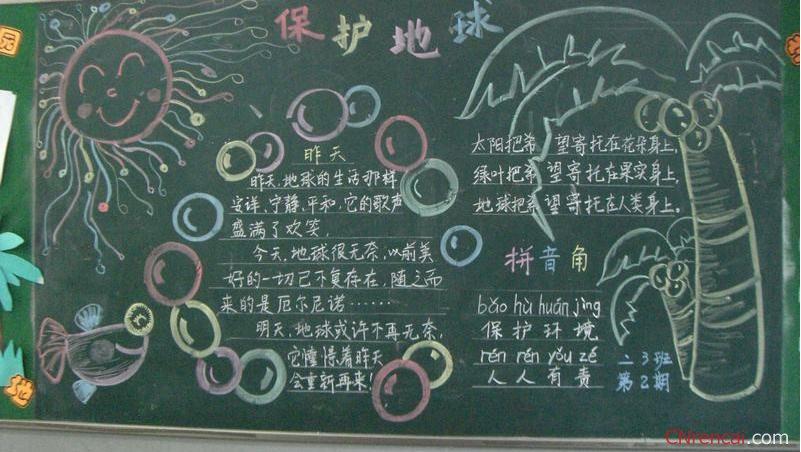 保护地球
昨天
昨天,地球的生活那样
安详,宁静,平和,它的歌声
盛满了欢笑,
今天,地球很无奈,以前美
好的一切已不复存在,随之而
来的是厄尔尼诺……
明天,地球或许不再无奈,
它憧憬着昨天
会重新再来!
太阳把希 望寄托在花朵身上,
绿叶把希 望寄托在果实身上,
地球把希 望寄托在人类身上。
拼音角
bǎo hù huán jìng
保护环境
rén rén yǒu zé
人人有责
二3班
第2期
园
地
CNrencai.com